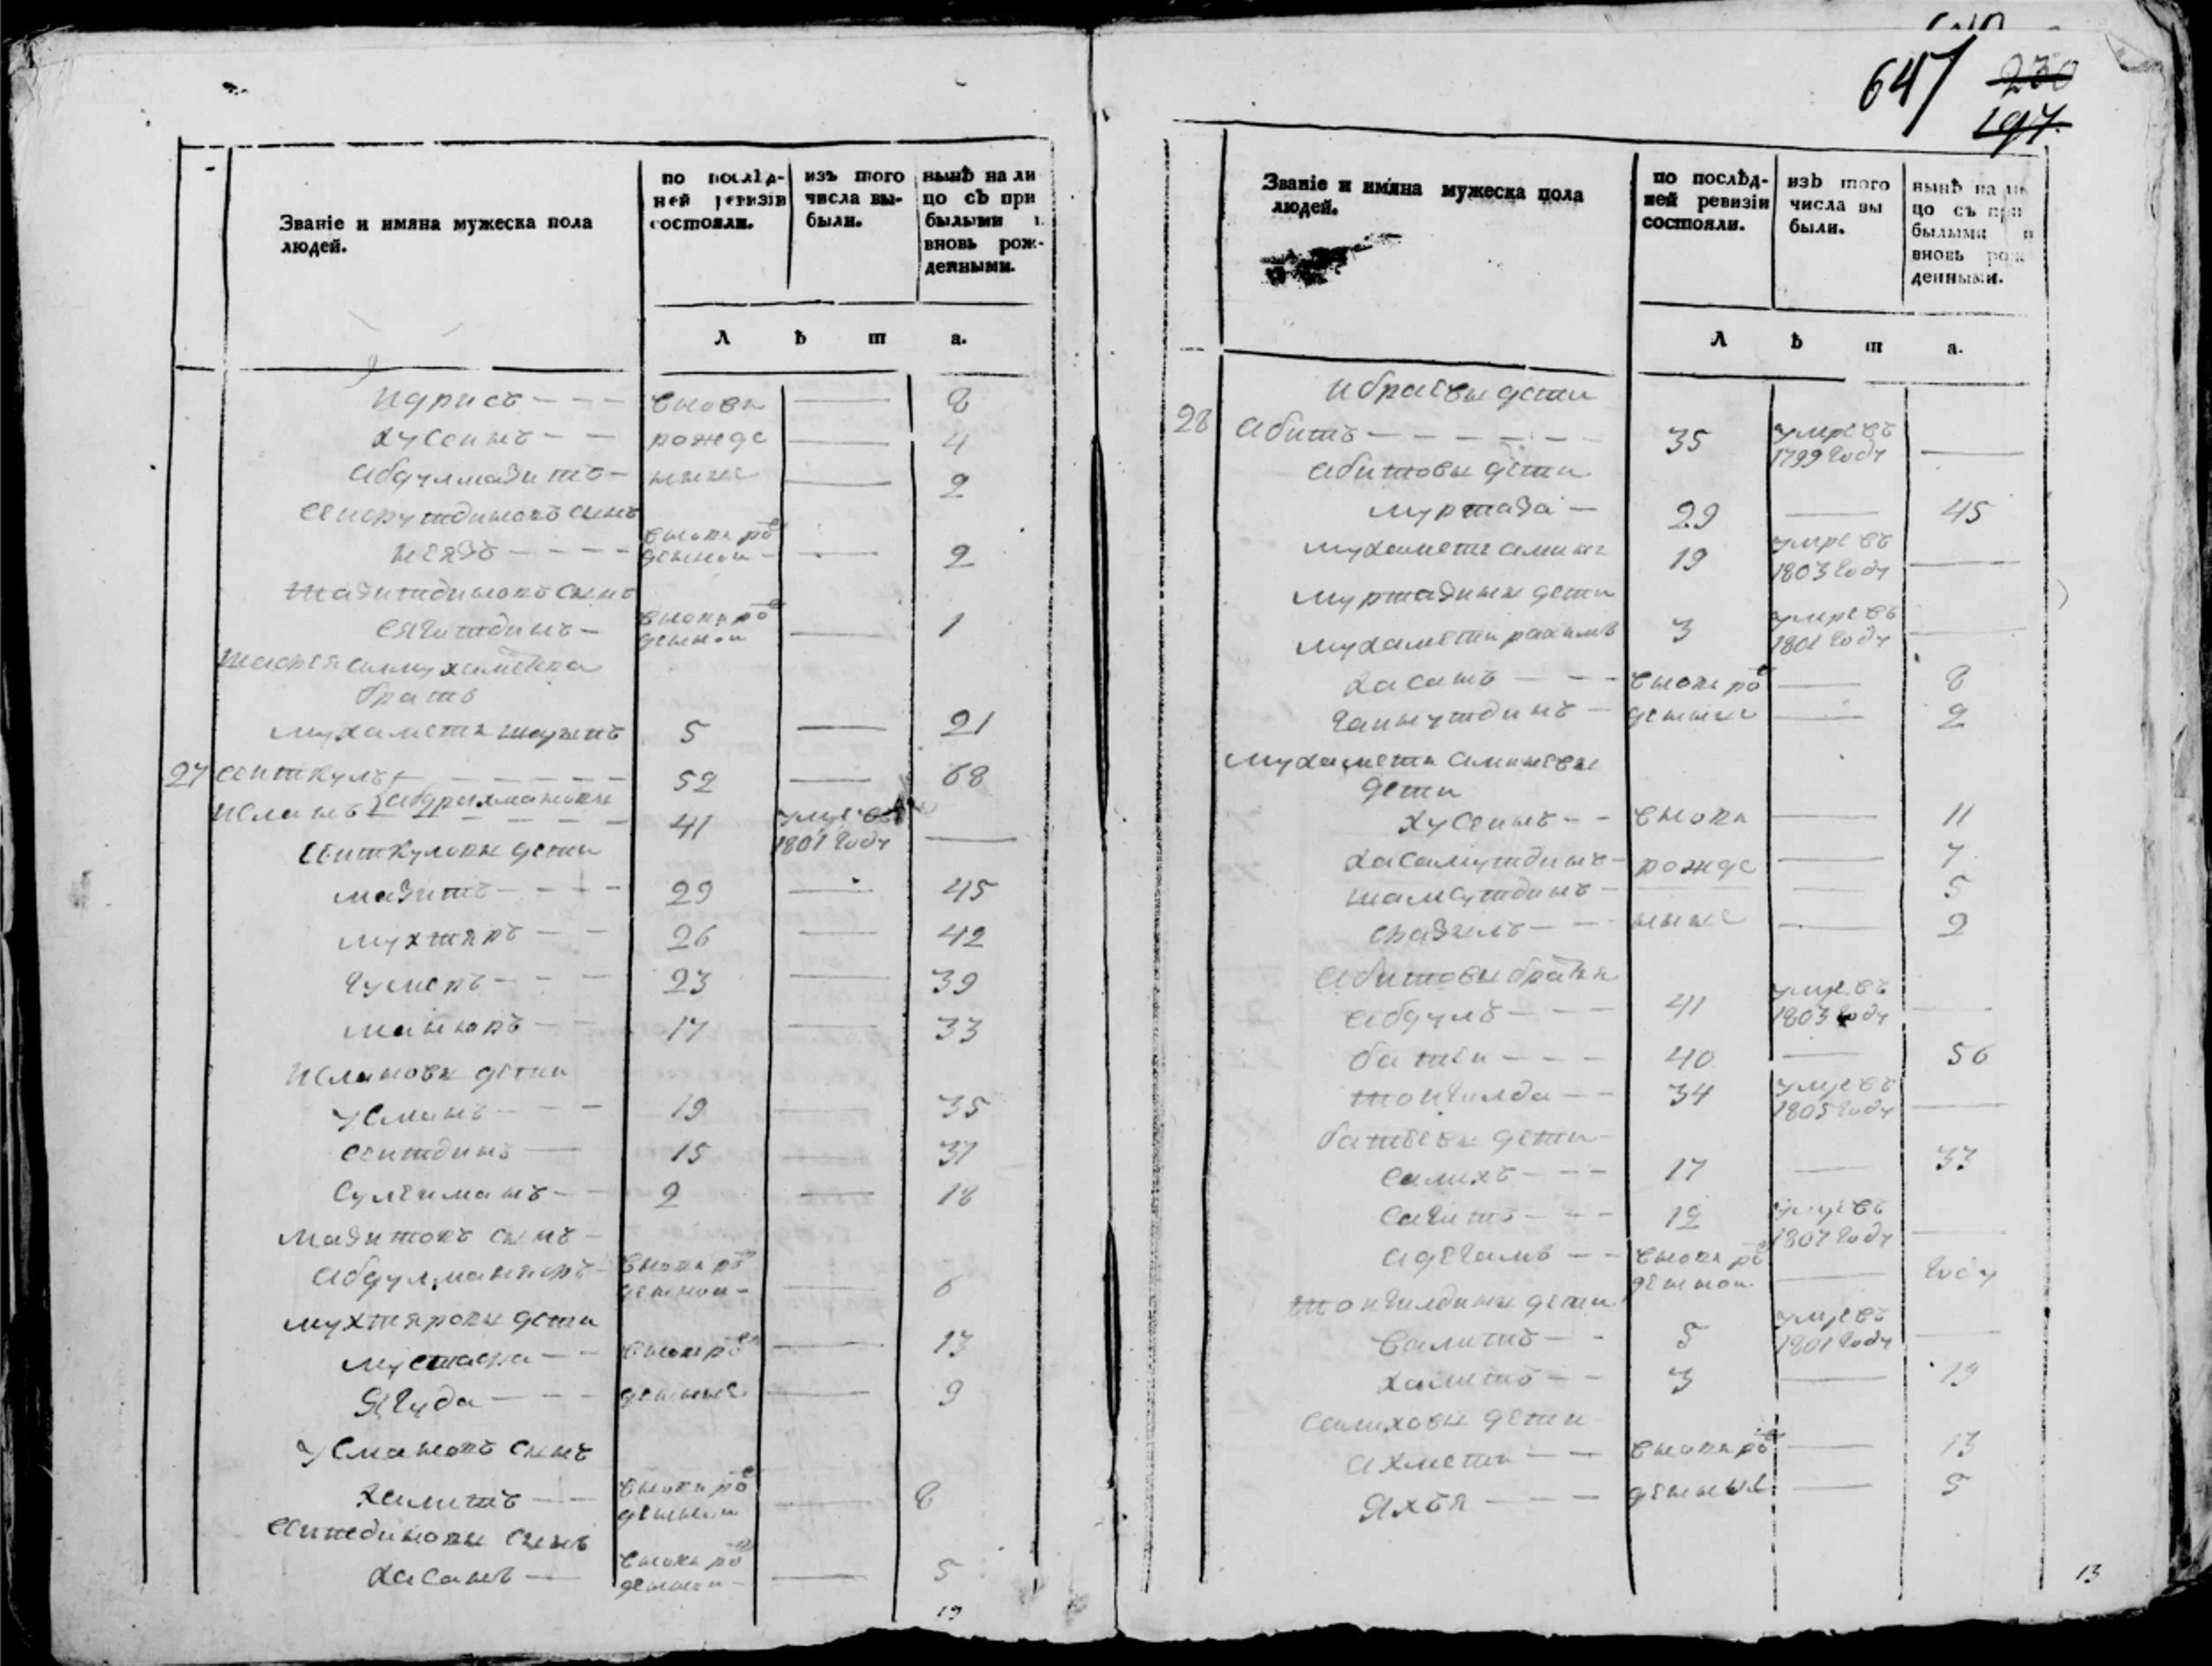 647 230
197
Званіе и имяна мужеска пола
людей.
по послѣд-
ней ревизіи
состояли.
изъ того
числа вы-
были.
нынѣ на ли
цо съ при
былыми и
вновь рож-
денными.
Л ѣ т а.
Идрисъ - - - вновь — 8
Хусеинъ - - рожде — 4
Абдулмазитъ - нные — 2
Сеифутдиновъ сынъ
Неязъ - - - - вновь ро
жденной - — 2
Тазитдиновъ сынъ
Сягитдинъ - вновь ро
жденной — 1
братъ
Мухаметъ шарыпъ 5 — 21
27 Сеиткулъ - - - - - 52 — 68
Исланъ } Абдрахмановы - - - - 41 умре въ
1801 году —
Сеиткуловы дети
Мазитъ - - - - 29 — 45
Мухтяръ - - 26 — 42
Гумеръ - - - 23 — 39
Манюръ - - 17 — 33
Ислановы дети
Усманъ - - - 19 — 35
Сеитдинъ — 15 — 31
Сулеиманъ - - 2 — 18
Мазитовъ сынъ -
вновь ро
жденной - — 6
Мухтяровы дети
Мустафа - - вновь ро — 13
Ягуда - - - жденные — 9
Усмановъ сынъ
Халитъ - - вновь ро
жденной — 8
Сеитдиновы сынъ
Хасанъ — вновь ро
жденной - — 5
19
Званіе и имяна мужеска пола
людей.
по послѣд-
ней ревизіи
состояли.
изъ того
числа вы
были.
нынѣ на ли
цо съ при
былыми и
вновь рож
денными.
Л ѣ т а.
Ибраевы дети
28 Абитъ - - - - - - 35 умре въ
1799 году —
Абитовы дети
Муртаза - 29 — 45
Мухаметь аминь 19 умре въ
1803 году —
Муртазины дети
Мухаметь рахимъ 3 умре въ
1801 году —
Хасанъ - - - вновь ро — 8
Гаинутдинъ - жденные — 2
Мухаметь аминевы
дети
Хусеинъ - - вновь — 11
Хасамутдинъ - рожде — 7
Шамсутдинъ - — 5
Фазылъ - - - нные — 2
Абитовы братья
Абдулъ - - - 41 умре въ
1803 году —
Батыи - - - 40 — 56
Тоигилда - - 34 умре въ
1805 году —
Батыевы дети -
Салихъ - - - 17 — 33
Сагитъ - - - 12 умре въ
1807 году —
Адегамъ - - вновь ро
жденной — году
Тоигилдины дети
Валитъ - - 5 умре въ
1801 году —
Халитъ - - 3 — 19
Салиховы дети
Ахметь - - вновь ро — 13
Яхья - - - жденныя — 5
13